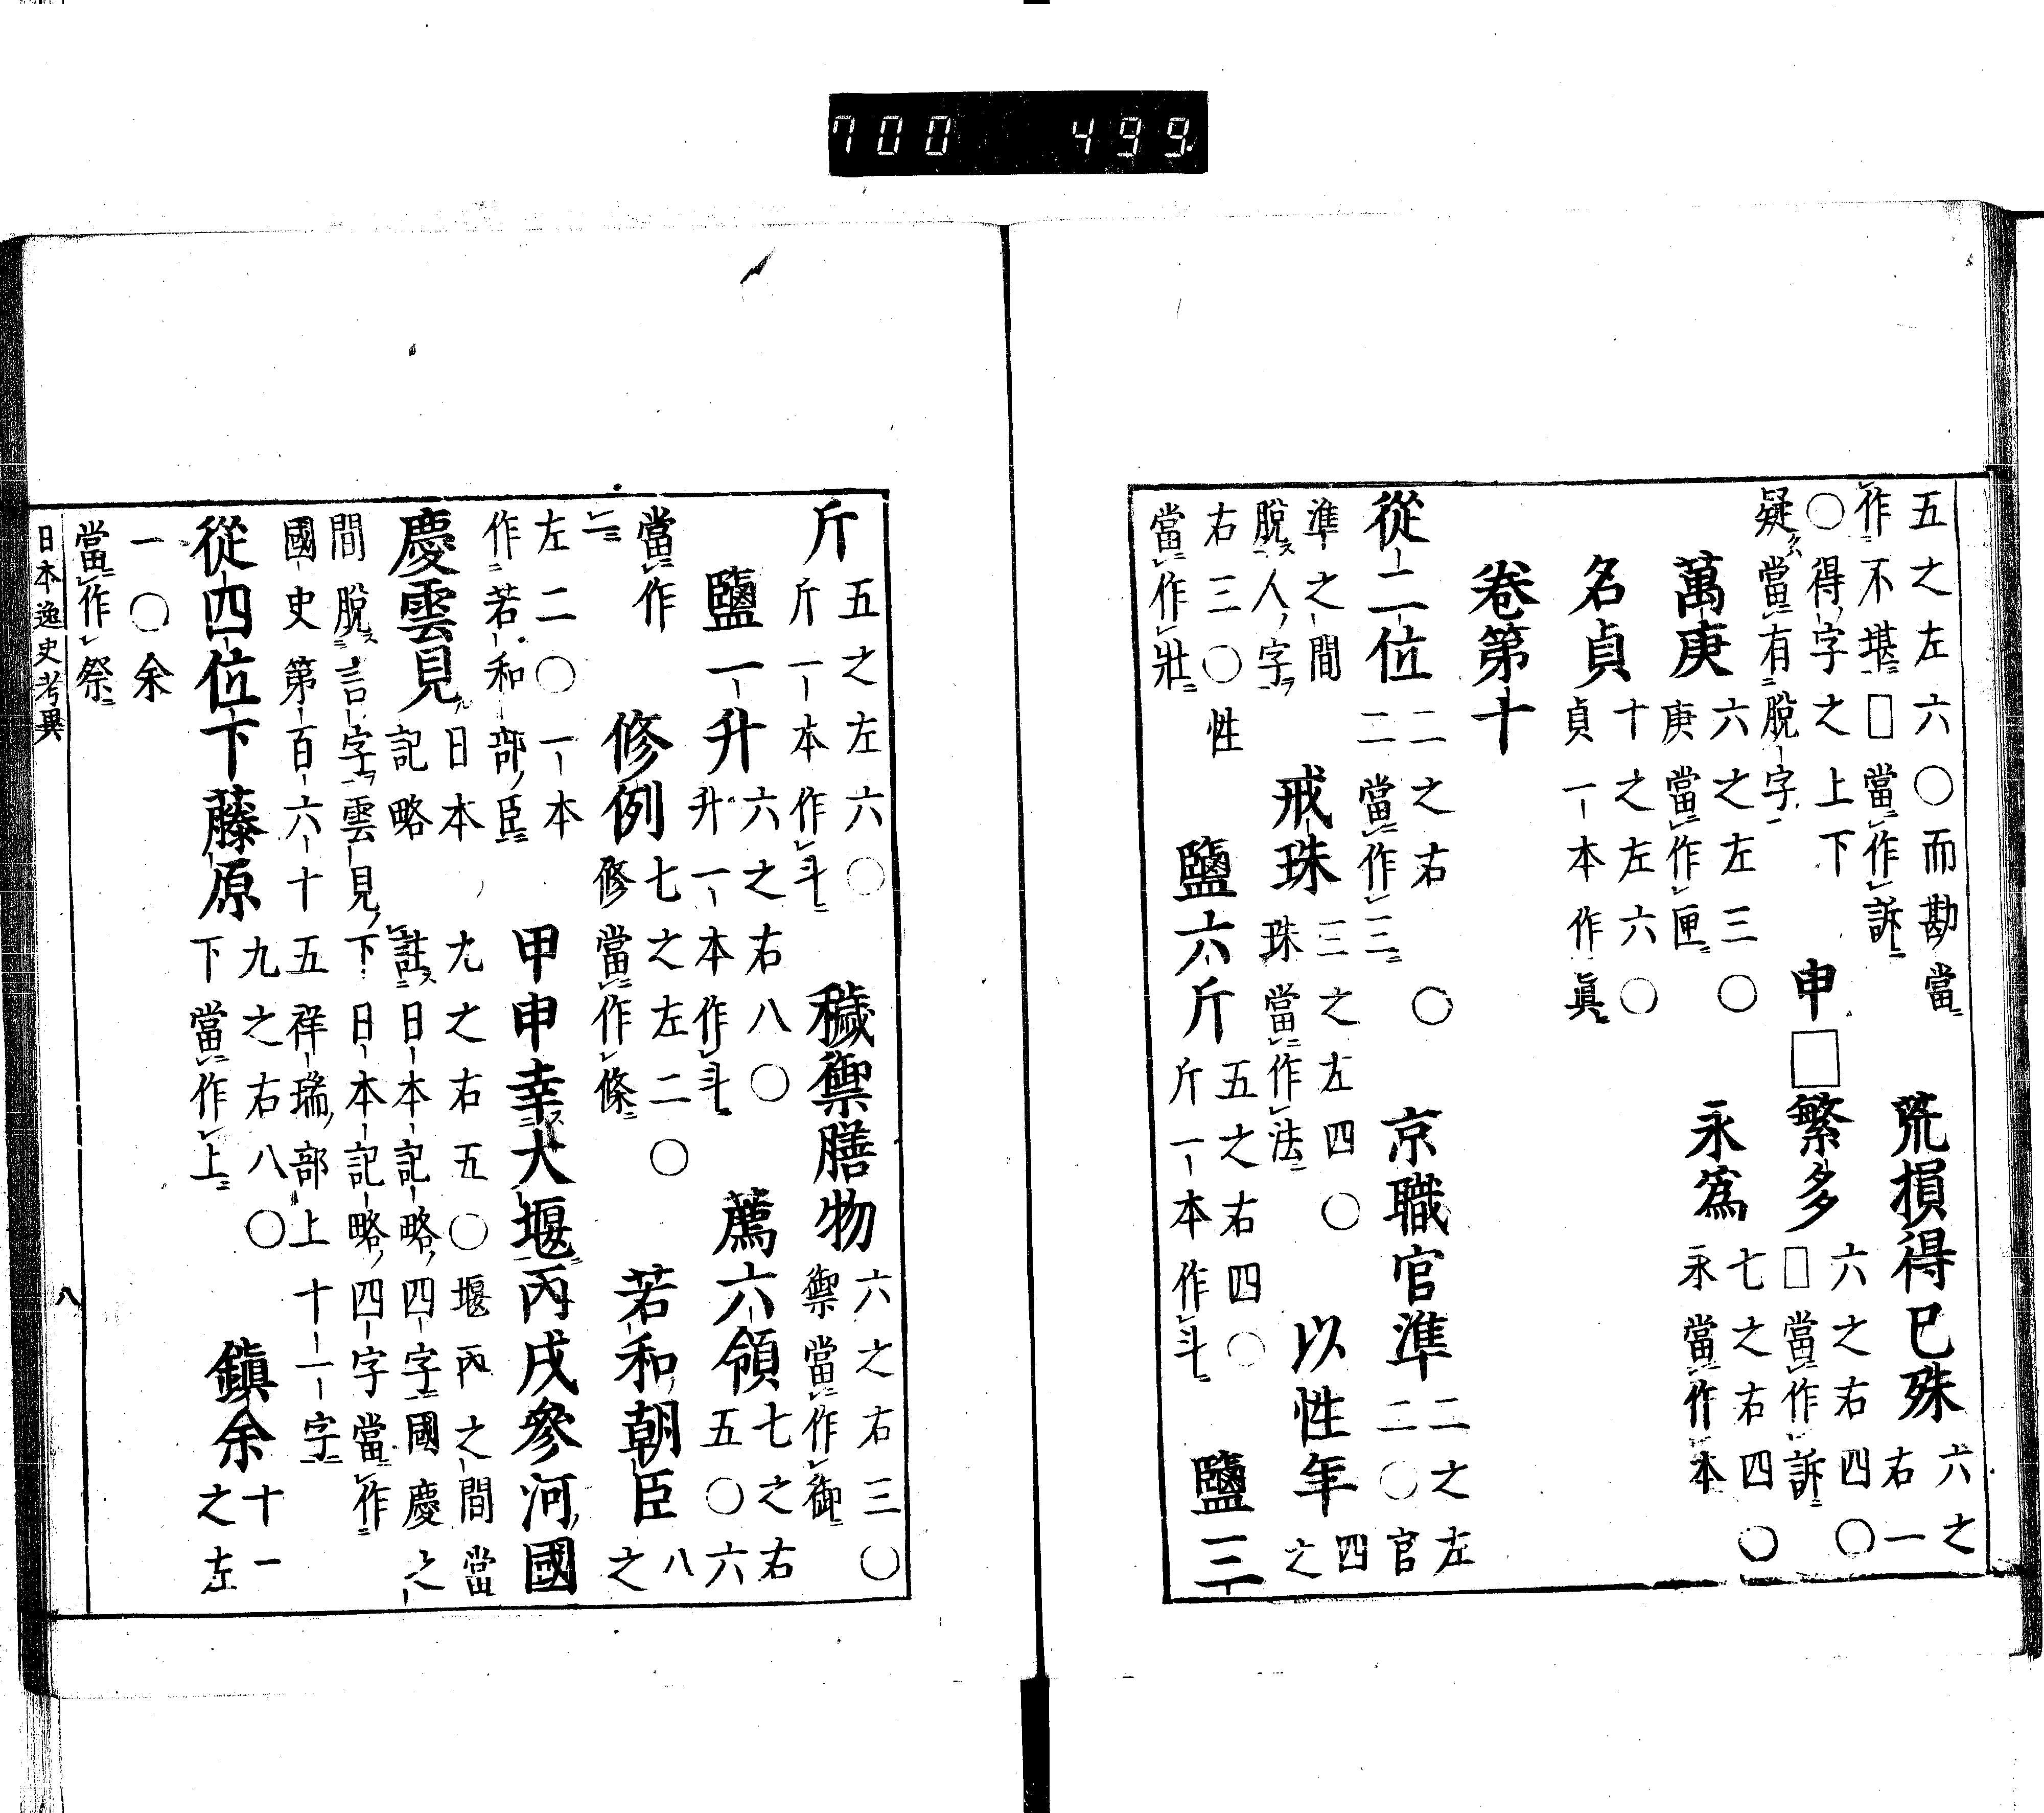 五之左六〇而勘當
作不堪□當作訴
荒損得已殊
六之
右一
〇得字之上下
疑當有脫字
申□繁多
六之右四〇
□當作訴
萬庚
六之左三〇
庚當作匣
永為
七之右四〇
永當作本
名貞
十之左六〇
貞一本作眞
卷第十
從二位
二之右〇
二當作三
京職官準
二之左
二〇官
準之間
脫ス人ノ字ヲ
戒珠
三之左四〇
珠當作法
以性年
四
之
右三〇性
當作壯
鹽六斤
五之右四〇
斤一本作斗
鹽三
斤
五之左六〇
斤一本作斗
穢禦膳物
六之右三〇
禦當作御
鹽一升
六之右八〇
升一本作斗
薦六領
七之右
五〇六
當作
二
修例
七之左二〇
修當作條
若和朝臣
八
之
左二〇一本
作若和部臣
甲申幸大堰丙戌參河國
慶雲見
日本
記略
九之右五〇堰丙之間當
註日本記略四字國慶之
間脫言字雲見下日本記略四字當作
國史第百六十五祥瑞部上十一字
從四位下藤原
九之右八〇
下當作上
鎮余
十一
之左
一〇余
當作祭
日本逸史考異
八
700 499